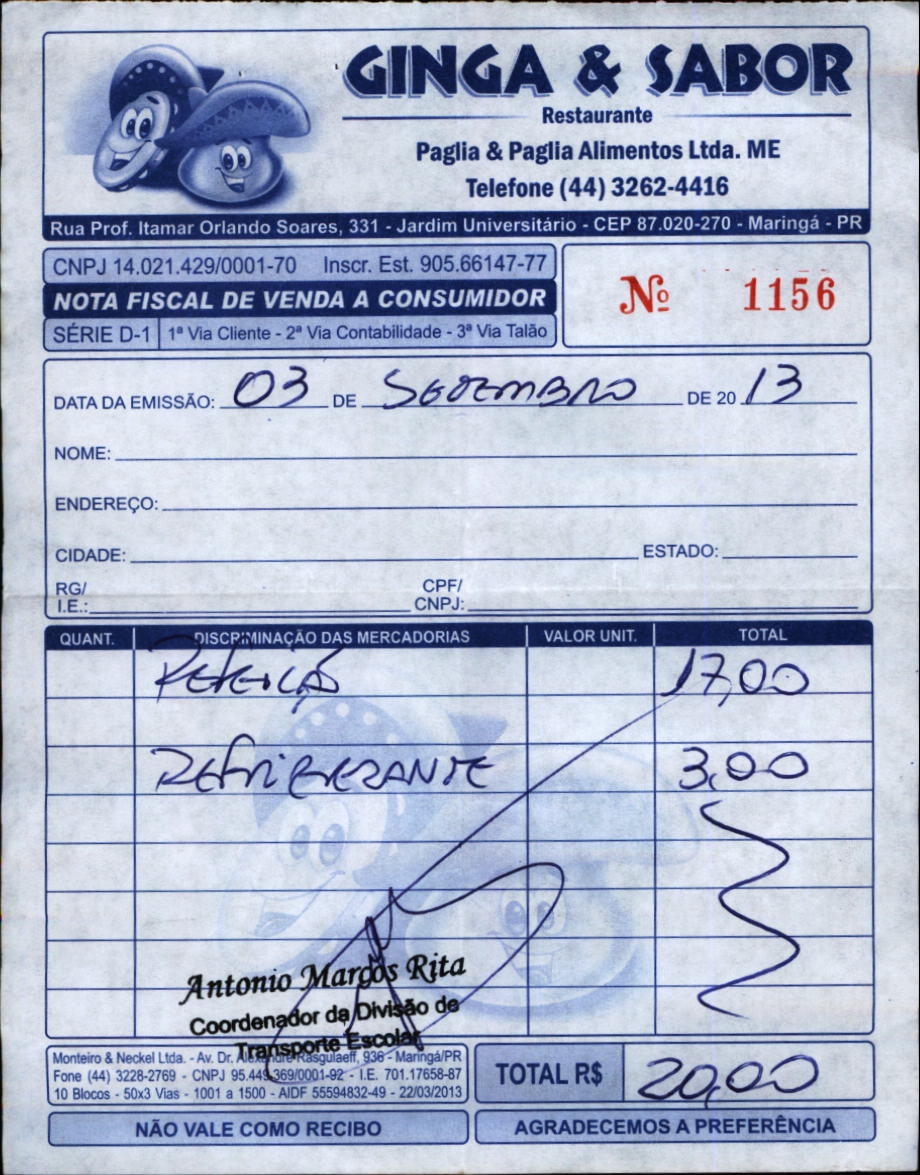 GINGA & SABOR
Restaurante
Paglia & Paglia Alimentos Ltda. ME
Telefone (44) 3262-4416
Rua Prof. Itamar Orlando Soares, 331 - Jardim Universitário - CEP 87.020-270 - Maringá - PR
CNPJ 14.021.429/0001-70 Inscr. Est. 905.66147-77
NOTA FISCAL DE VENDA A CONSUMIDOR
Nº 1156
SÉRIE D-1 1ª Via Cliente - 2ª Via Contabilidade - 3ª Via Talão
DATA DA EMISSÃO: 03 DE SEZEMBRO DE 20 13
NOME:
ENDEREÇO:
CIDADE: ESTADO:
RG/ CPF/
I.E.: CNPJ:
QUANT. DISCRIMINAÇÃO DAS MERCADORIAS VALOR UNIT. TOTAL
REFEIÇÃO 17,00
REFRIGERANTE 3,00
Antonio Marcos Rita
Coordenador da Divisão de
Transporte Escolar
Monteiro & Neckel Ltda. - Av. Dr. Alexandre Rasgulaeff, 936 - Maringá/PR
Fone (44) 3228-2769 - CNPJ 95.449.369/0001-92 - I.E. 701.17658-87
10 Blocos - 50x3 Vias - 1001 a 1500 - AIDF 55594832-49 - 22/03/2013
TOTAL R$ 20,00
NÃO VALE COMO RECIBO
AGRADECEMOS A PREFERÊNCIA